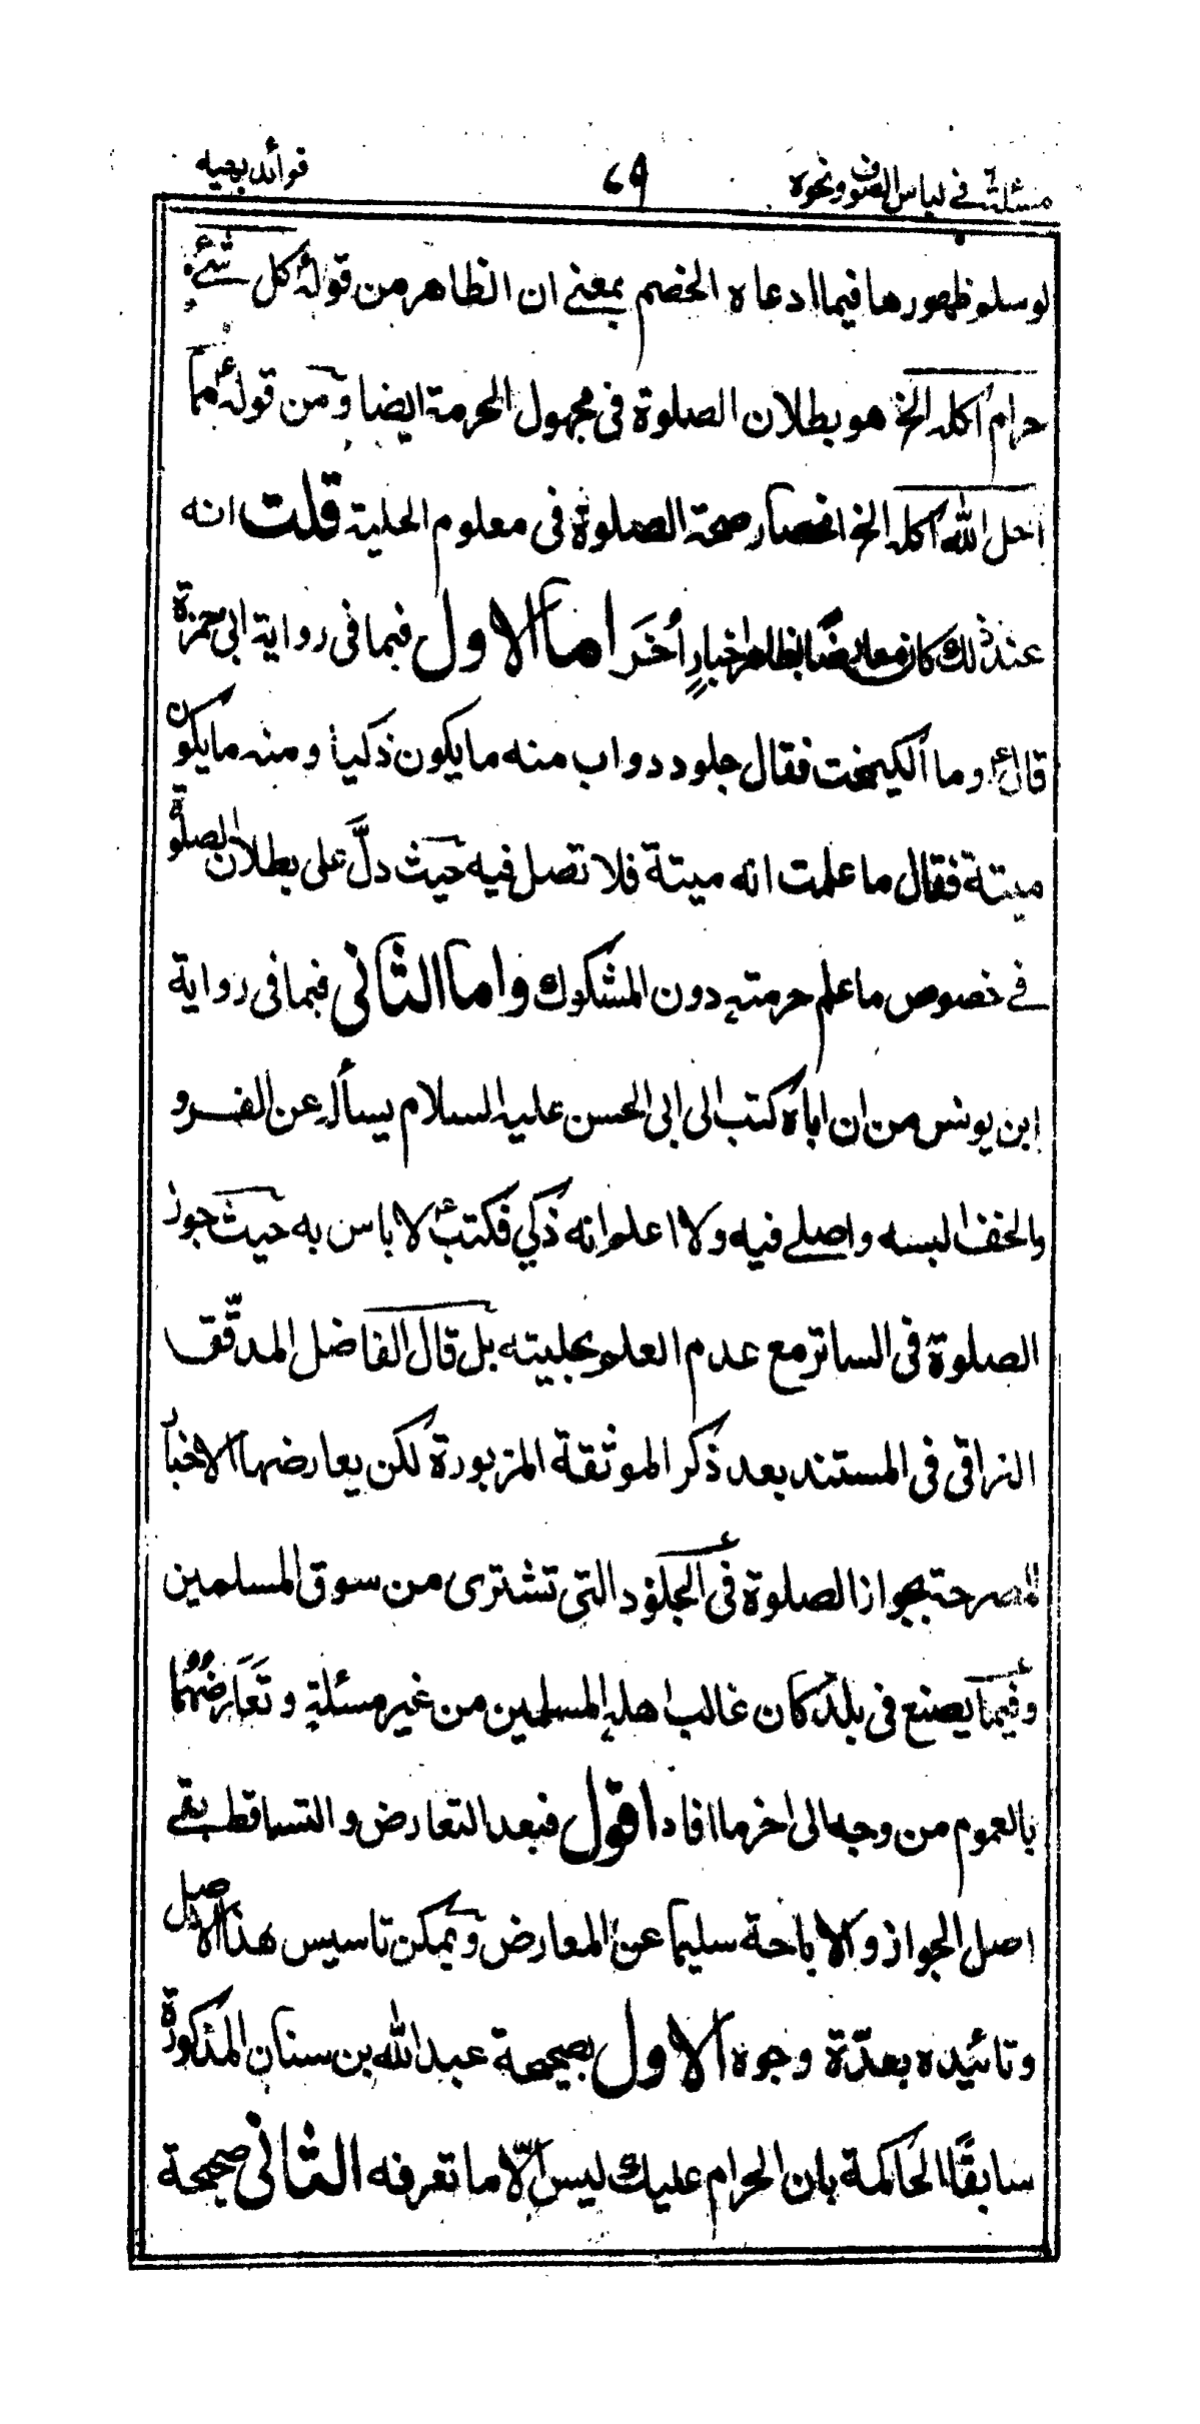 مسئلة في لباس الصوف ونحوه ٦٩ فوائد بهيه
لو سلم ظهورها فيما ادعاه الخصم بمعنى ان الظاهر من قولهؑ كل شئ
حرام اكله الخ هو بطلان الصلوة فى مجهول الحرمة ايضا ومن قولهؑ مما
احل الله اكله الخ انحصار صحة الصلوة فى معلوم الحلية قلت انه
عند ذلك كان معارضًا بظاهر اخبارٍ أُخَر اما الاول فبما فى رواية ابى حمزة
قالؑ وما الكيمخت فقال جلود دواب منه ما يكون ذكيا ومنه ما يكون
ميتة فقال ما علمت انه ميتة فلا تصل فيه حيث دلَّ على بطلان الصلوة
في خصوص ما علم حرمته دون المشكوك واما الثانى فبما فى رواية
ابن يونس من ان اباه كتب الى ابى الحسن عليه السلام يسأله عن الفرو
والخف البسه واصلے فيه ولا اعلم انه ذكي فكتبؑ لا باس به حيث جوز
الصلوة فى الساتر مع عدم العلم بحليته بل قال الفاضل المدقّق
النراقى فى المستند بعد ذكر الموثقة المزبورة لكن يعارضها الاخبار
المصرحة بجواز الصلوة فى الجلود التى تشترى من سوق المسلمين
وفيما يصنع فى بلد كان غالب اهله المسلمين من غير مسئلة وتَعَارضُهُما
بالعموم من وجه الى اخر ما افاد اقول فبعد التعارض والتساقط يبقے
اصل الجواز والاباحة سليما عن المعارض ويمكن تاسيس هذا الاصل
وتائيده بعدّة وجوه الاول بصحيحة عبد الله بن سنان المذكورة
سابقًا الحاكمة بان الحرام عليك ليس الّا ما تعرفه الثانى صحيحة